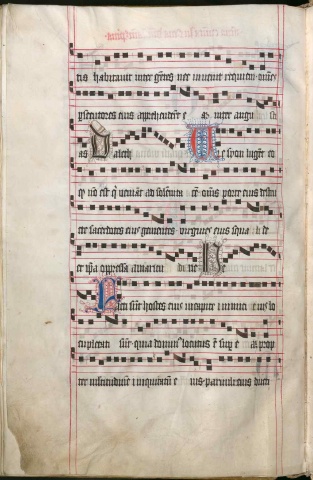 tis habitauit inter gētes nec inuenit requiem om̄es
psecutores eius aprehenderūt eā inter angusti
as Daleth Uie syon lugēt eo
ꝙ nō est q̇ ueniāt ad solēnitatē om̄s porte eius destru
cte sacerdotes eius gementes uirgines eius squalide
et ip̄a oppressa amaritudine He
Facti sūt hostes eius in capite inimici eius lo
cupletati sūt quia domin' locutus ē suꝑ eā ꝓp
ter multitudinē iniquitatū eius paruuli eius ducti